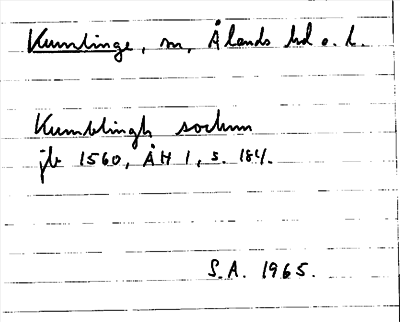 Kumlinge, sn, Ålands hd o. l.
Kumblingh sochnn
jb 1560, ÅH 1, s. 184.
S.A. 1965.